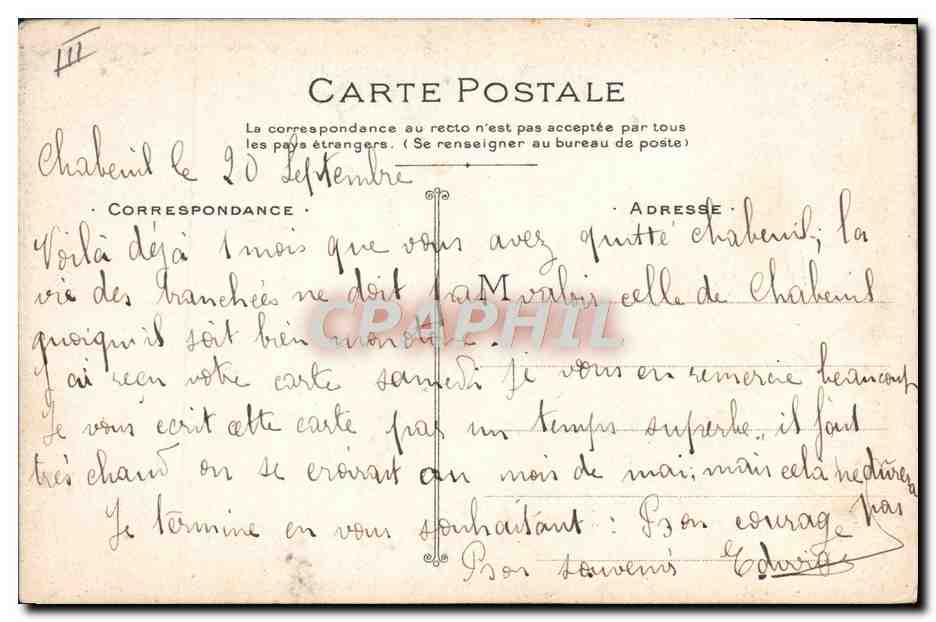 III
CARTE POSTALE
La correspondance au recto n'est pas acceptée par tous
les pays étrangers. (Se renseigner au bureau de poste)
Chabeuil le 20 Septembre
CORRESPONDANCE
ADRESSE
Voilà déjà 1 mois que vous avez quitté Chabeuil; la
vie des tranchées ne doit pas valoir celle de Chabeuil
M
quoiqu'il soit bien monotone.
CPAPHIL
J'ai reçu votre carte samedi je vous en remercie beaucoup
Je vous écrit cette carte par un temps superbe, il fait
très chaud on se croirait au mois de mai; mais cela ne durera
pas
Je termine en vous souhaitant : Bon courage
Bon souvenir Edwige